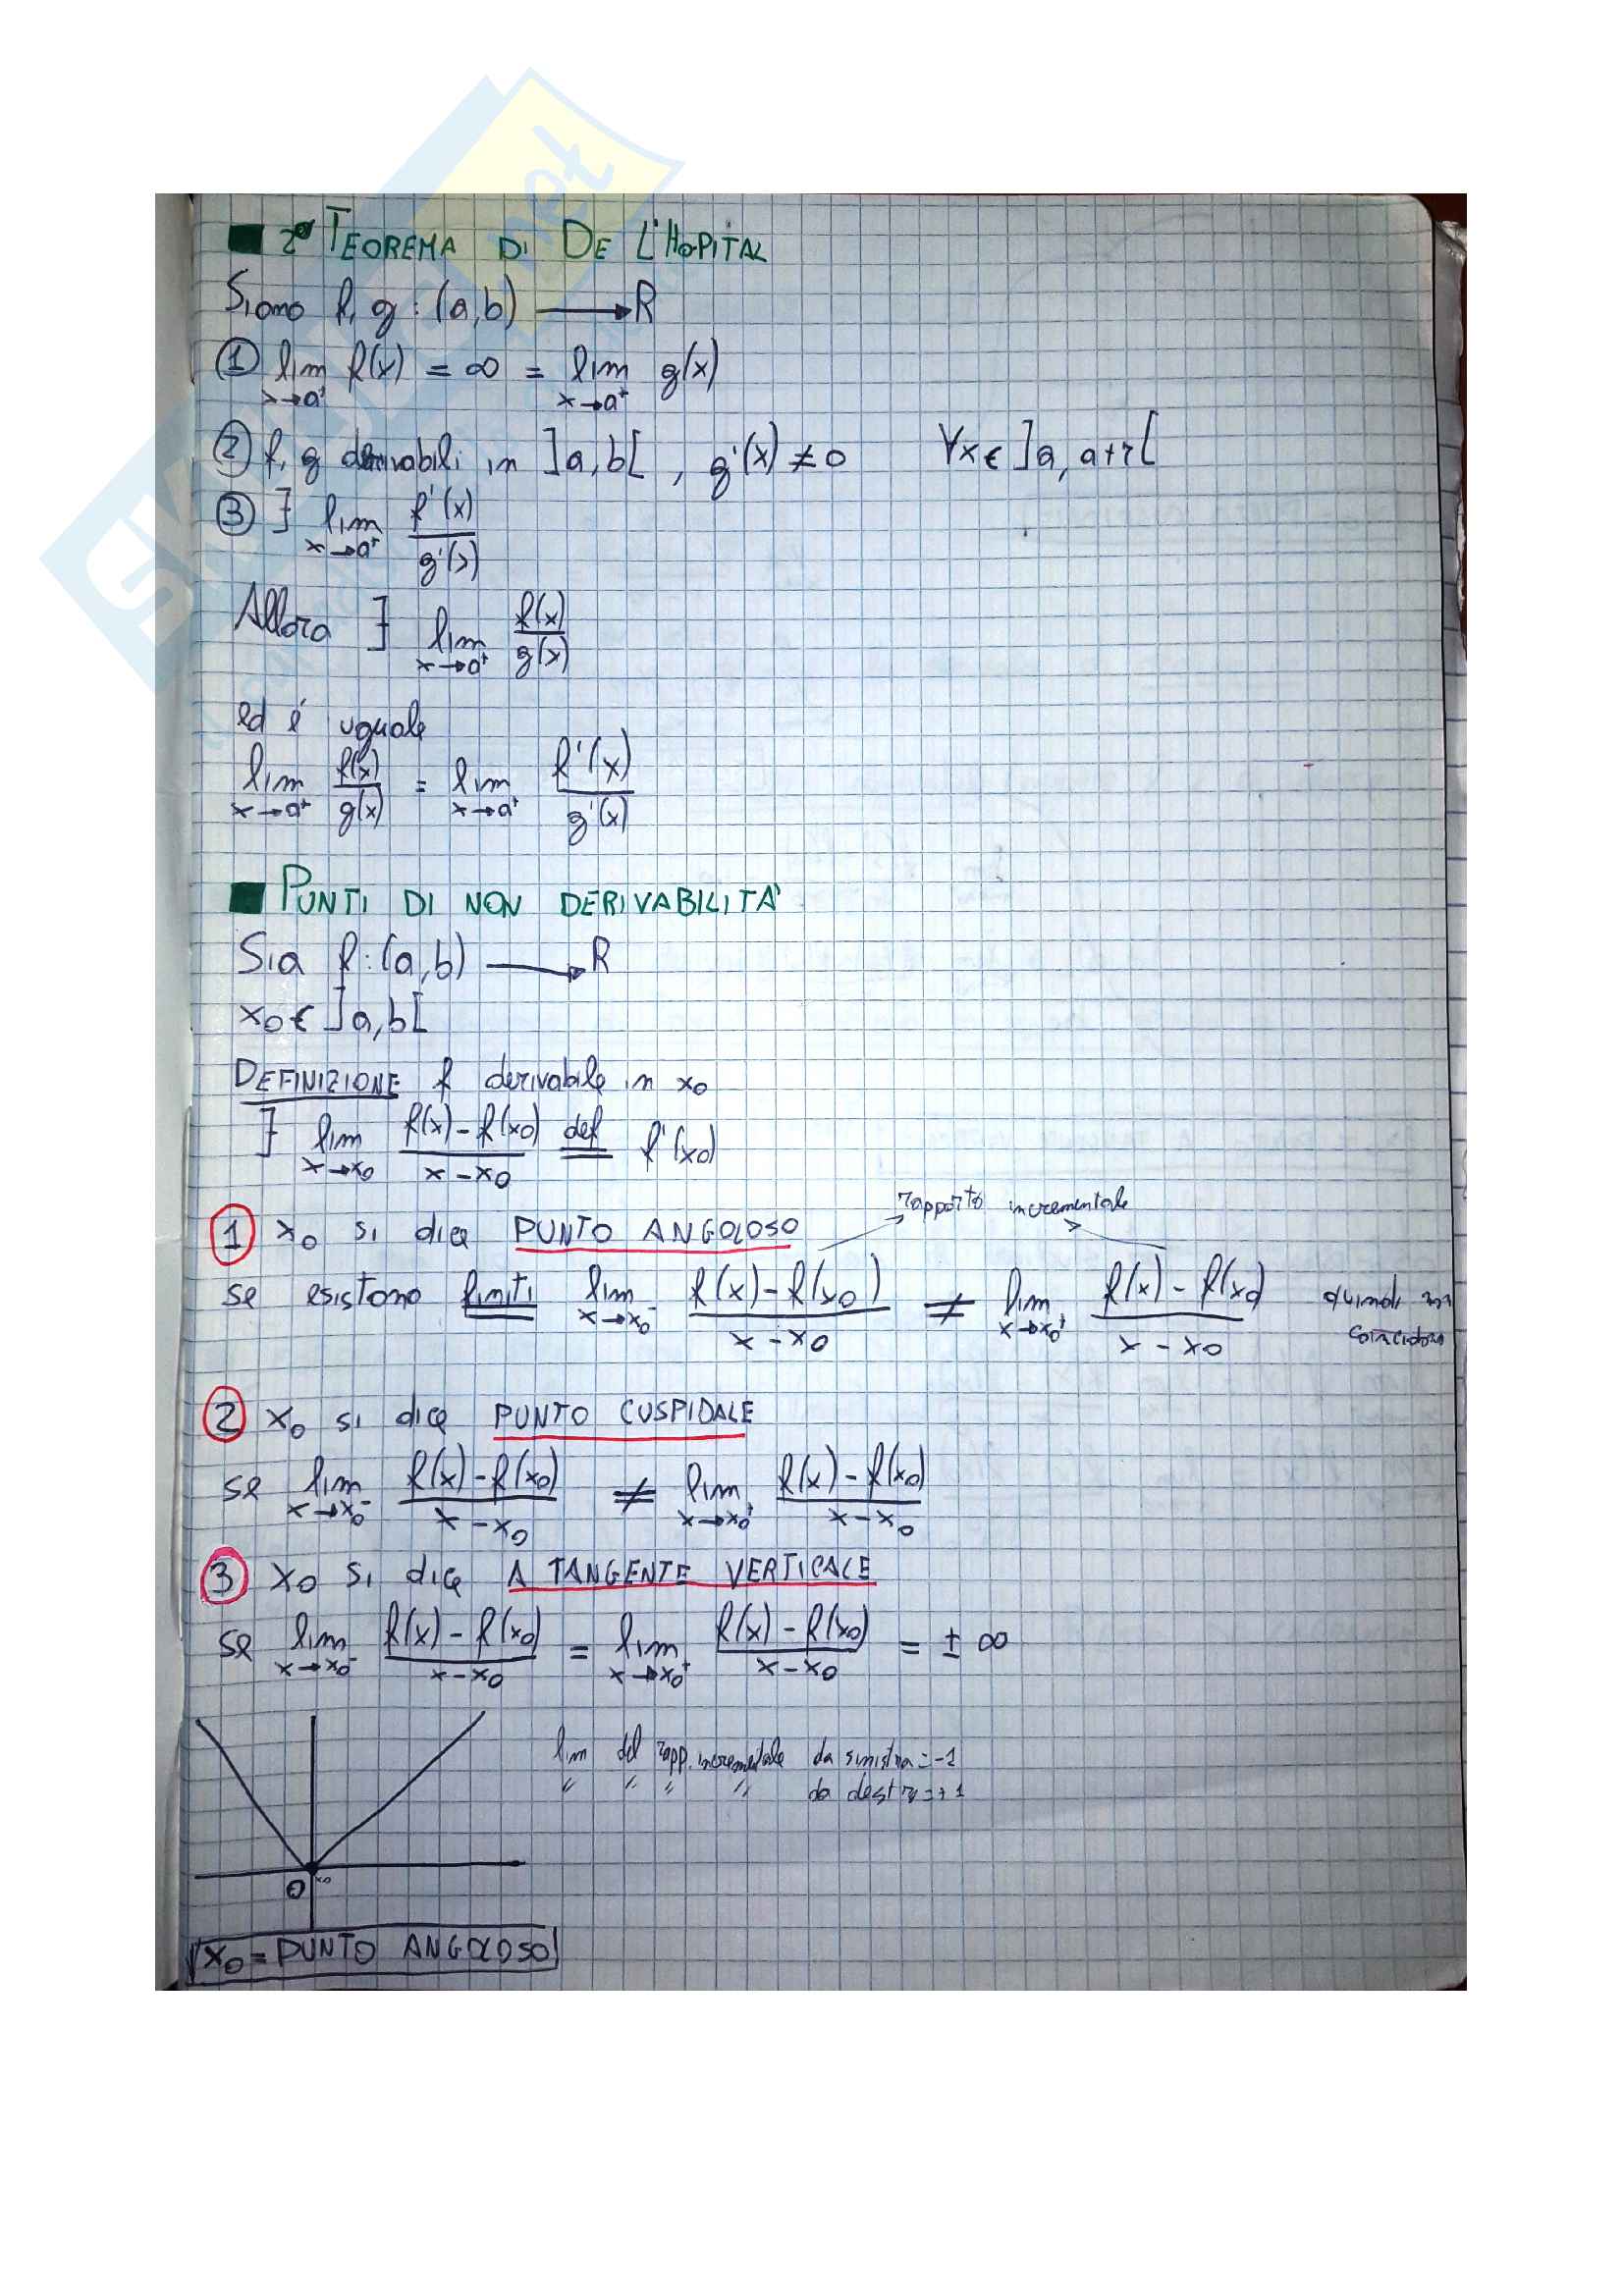 2° TEOREMA DI DE L'HOPITAL
Siano f, g : (a,b) ⟶ R
① lim x→a⁺ f(x) = ∞ = lim x→a⁺ g(x)
② f, g derivabili in ]a,b[ , g'(x) ≠ 0 ∀x∈ ]a, a+r[
③ ∃ lim x→a⁺ f'(x)/g'(x)
Allora ∃ lim x→a⁺ f(x)/g(x)
ed é uguale
lim x→a⁺ f(x)/g(x) = lim x→a⁺ f'(x)/g'(x)
PUNTI DI NON DERIVABILITÀ
Sia f:(a,b) ⟶ R
x₀ ∈ ]a,b[
DEFINIZIONE f derivabile in x₀
∃ lim x→x₀ (f(x)-f(x₀))/(x-x₀) def = f'(x₀)
rapporto incrementale
① x₀ si dice PUNTO ANGOLOSO
se esistono finiti lim x→x₀⁻ (f(x)-f(x₀))/(x-x₀) ≠ lim x→x₀⁺ (f(x)-f(x₀))/(x-x₀) quindi
② x₀ si dice PUNTO CUSPIDALE
se lim x→x₀⁻ (f(x)-f(x₀))/(x-x₀) ≠ lim x→x₀⁺ (f(x)-f(x₀))/(x-x₀)
③ x₀ si dice A TANGENTE VERTICALE
se lim x→x₀⁻ (f(x)-f(x₀))/(x-x₀) = lim x→x₀⁺ (f(x)-f(x₀))/(x-x₀) = ± ∞
lim del rapp. incrementale da sinistra = -1
" " " " da destra = +1
0 x₀
x₀ = PUNTO ANGOLOSO